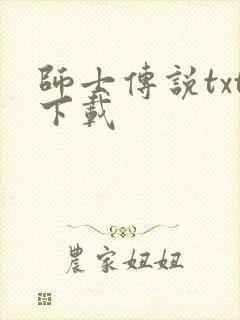 師士傳説txt
下載
農家妞妞